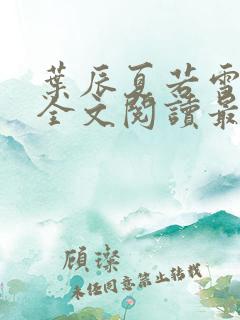 葉辰夏若雪
全文閱讀最
顾璨
未经同意禁止转载